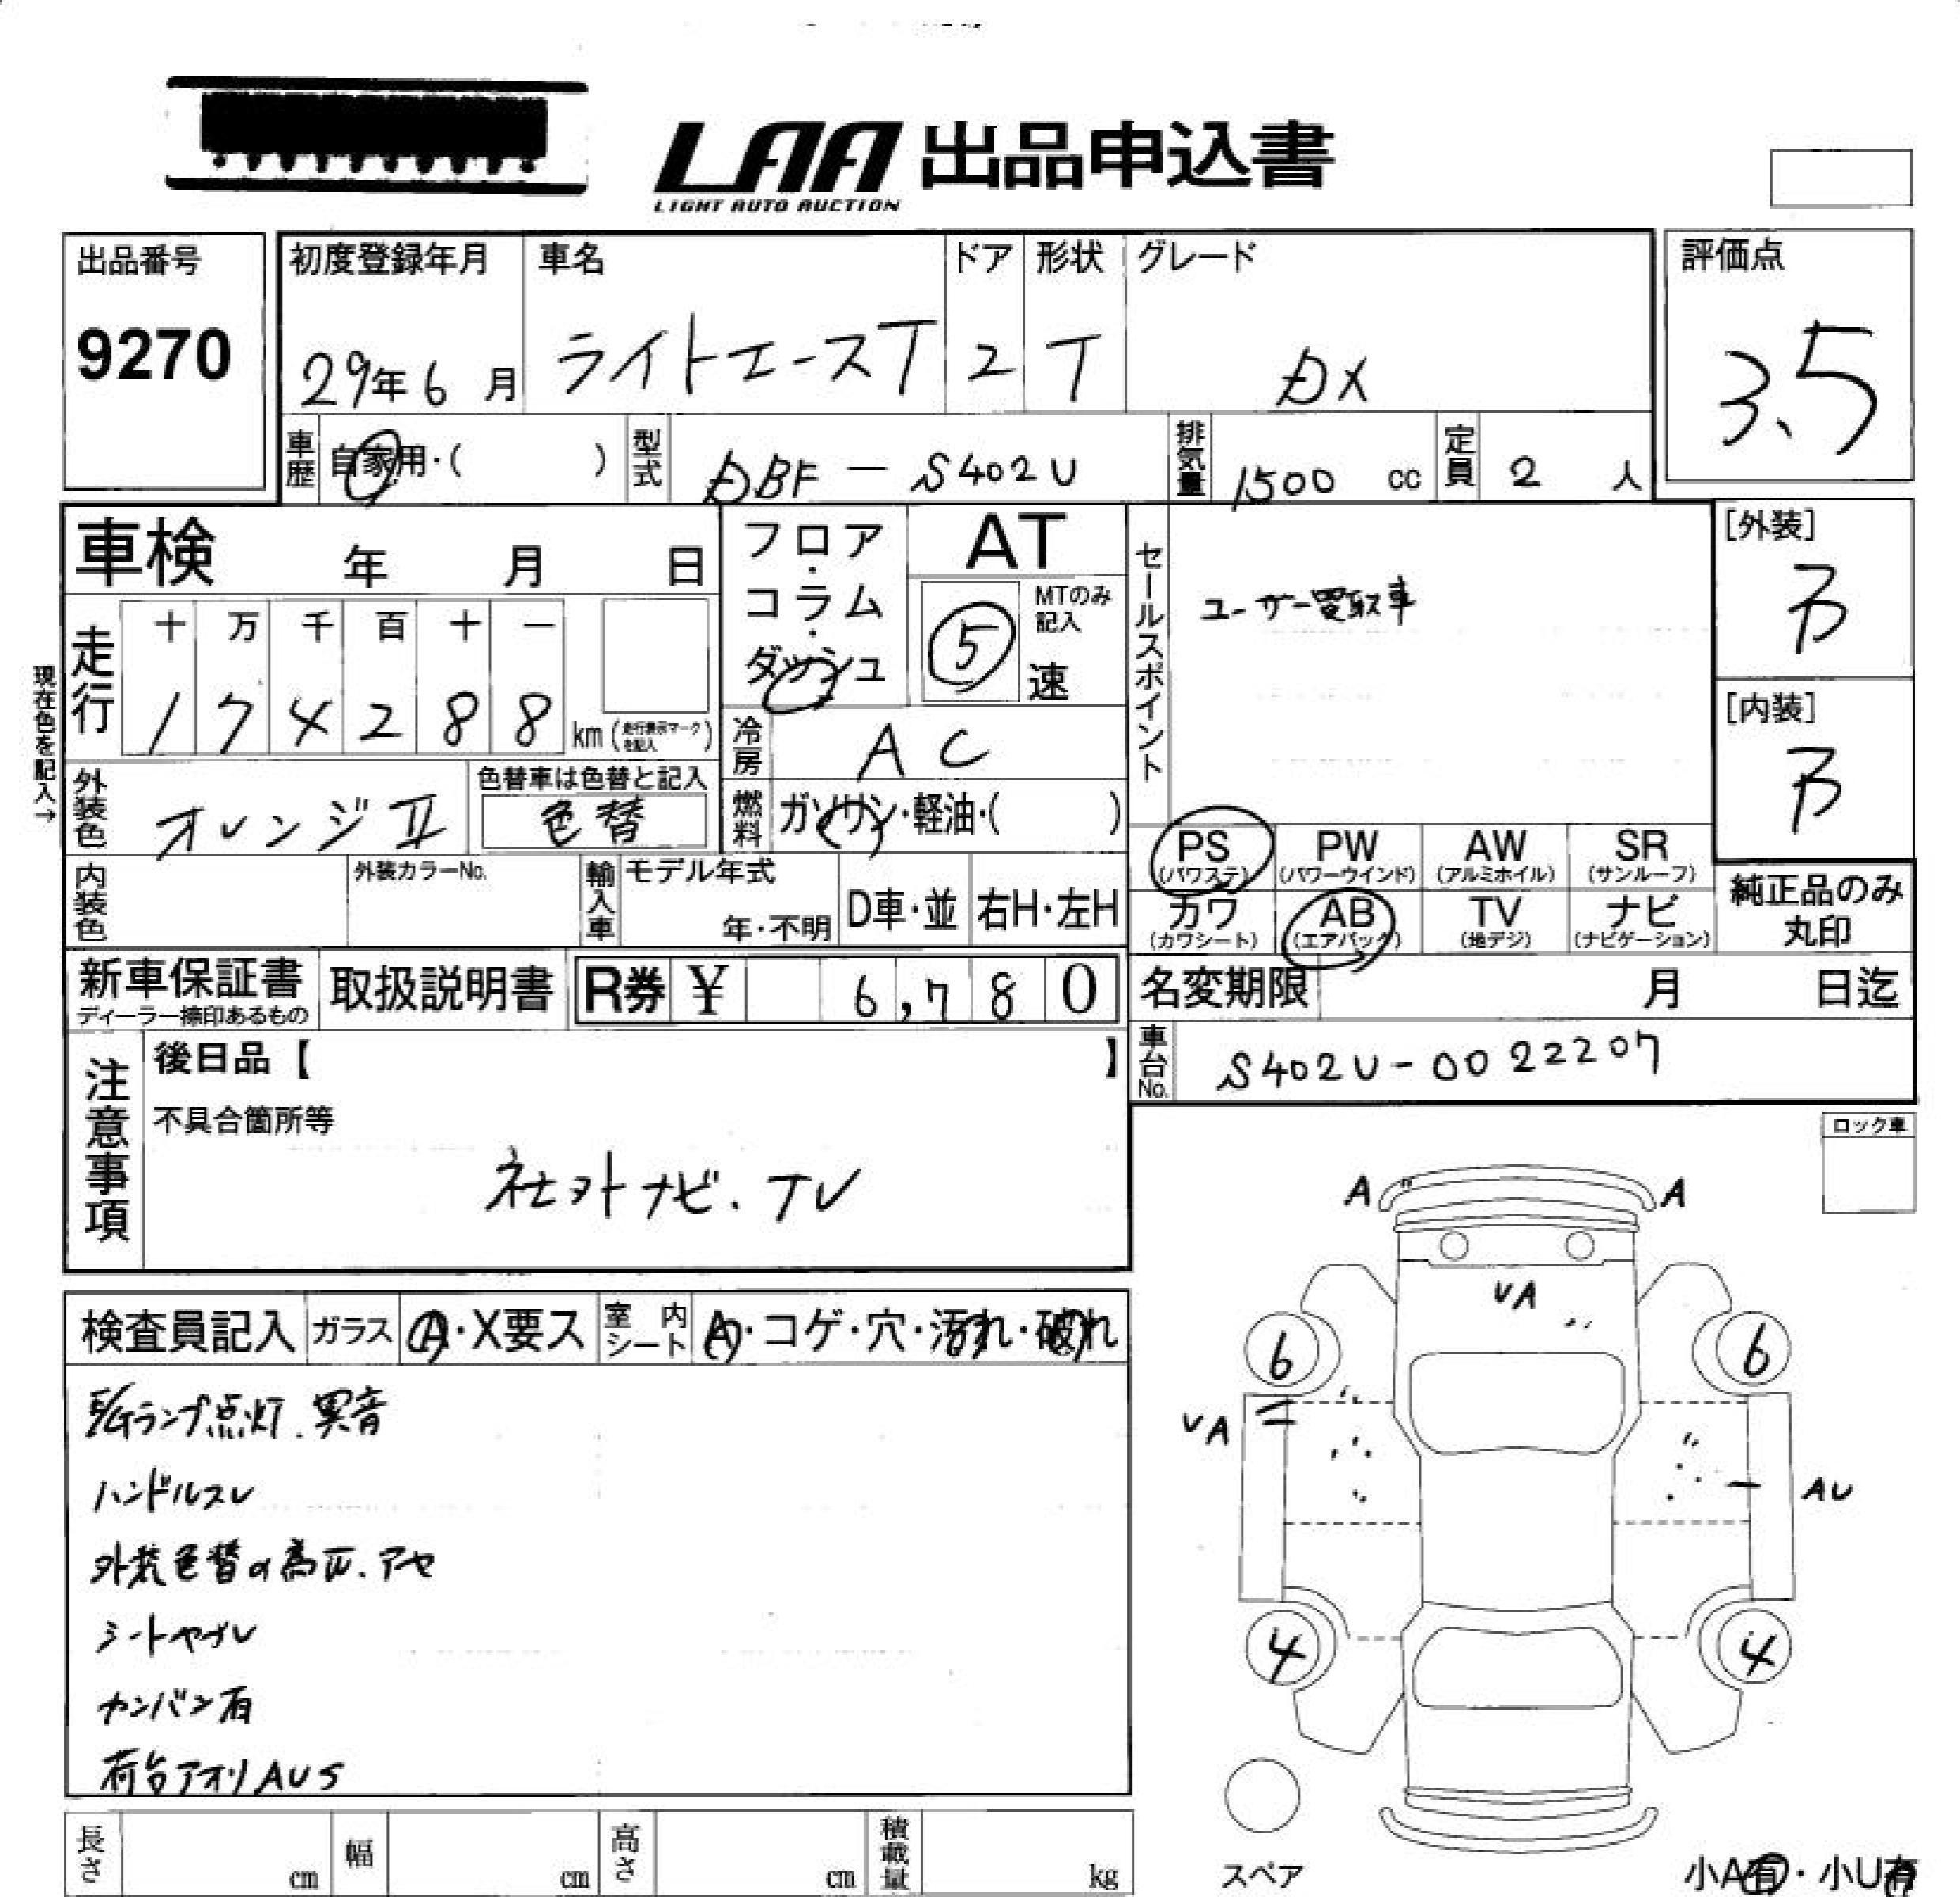 LAA 出品申込書
LIGHT AUTO AUCTION
出品番号
9270
初度登録年月
29年6月
車名
ライトエースT
ドア
2
形状
T
グレード
DX
評価点
3.5
車歴 自家用・( )
型式 DBF-S402U
排気量 1500 cc
定員 2 人
車検 年 月 日
フロア・コラム・ダッシュ
AT
⑤
MTのみ記入
速
セールスポイント
ユーザー買取車
[外装]
B
[内装]
B
現在色を記入→
走行
十 万 千 百 十 一
1 7 4 2 8 8 km (走行表示マークを記入)
冷房 AC
外装色 オレンジⅡ
色替車は色替と記入
色替
燃料 ガソリン・軽油・( )
PS (パワステ)
PW (パワーウインド)
AW (アルミホイル)
SR (サンルーフ)
カワ (カワシート)
AB (エアバック)
TV (地デジ)
ナビ (ナビゲーション)
純正品のみ丸印
内装色
外装カラーNo.
輸入車
モデル年式
年・不明
D車・並
右H・左H
新車保証書
ディーラー捺印あるもの
取扱説明書
R券 ¥ 6,780
名変期限 月 日迄
車台No. S402U-0022207
注意事項
後日品【 】
不具合箇所等
社外ナビ.TV
ロック車
A A
VA
6 6
VA
AU
4 4
スペア
小A有・小U有
検査員記入
ガラス A・X要ス
室内シート A・コゲ・穴・汚れ・破れ
E/Gランプ点灯.異音
ハンドルスレ
外装色替の為Ⅱ.アセ
シートヤブレ
カンバン有
荷台アオリAUS
長さ cm
幅 cm
高さ cm
積載量 kg